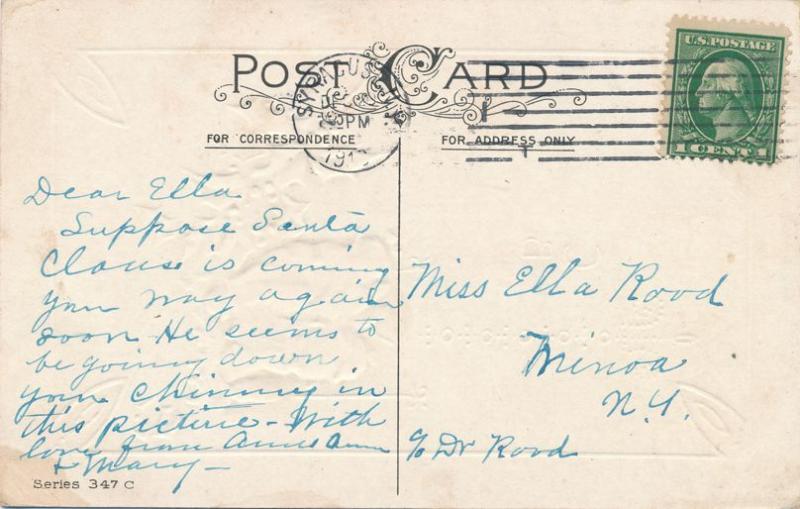 POST CARD
SYRACUSE
PM
191
U.S. POSTAGE
1 CENT 1
FOR CORRESPONDENCE
FOR ADDRESS ONLY
Dear Ella
Suppose Santa
Clause is coming
your way again
soon He seems to
be going down
your Chimney in
this picture - With
love from
+ Mary -
Miss Ella Rood
Minoa
N.Y.
c/o Dr Rood
Series 347 C